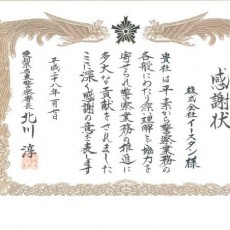 感謝状
株式会社イースタン様
貴社は平素から警察業務の
各般にわたり深い理解と協力を
寄せられ警察業務の推進に
多大な貢献をされました
ここに深く感謝の意を表します
平成二十八年一月一日
警察署長
北川 淳